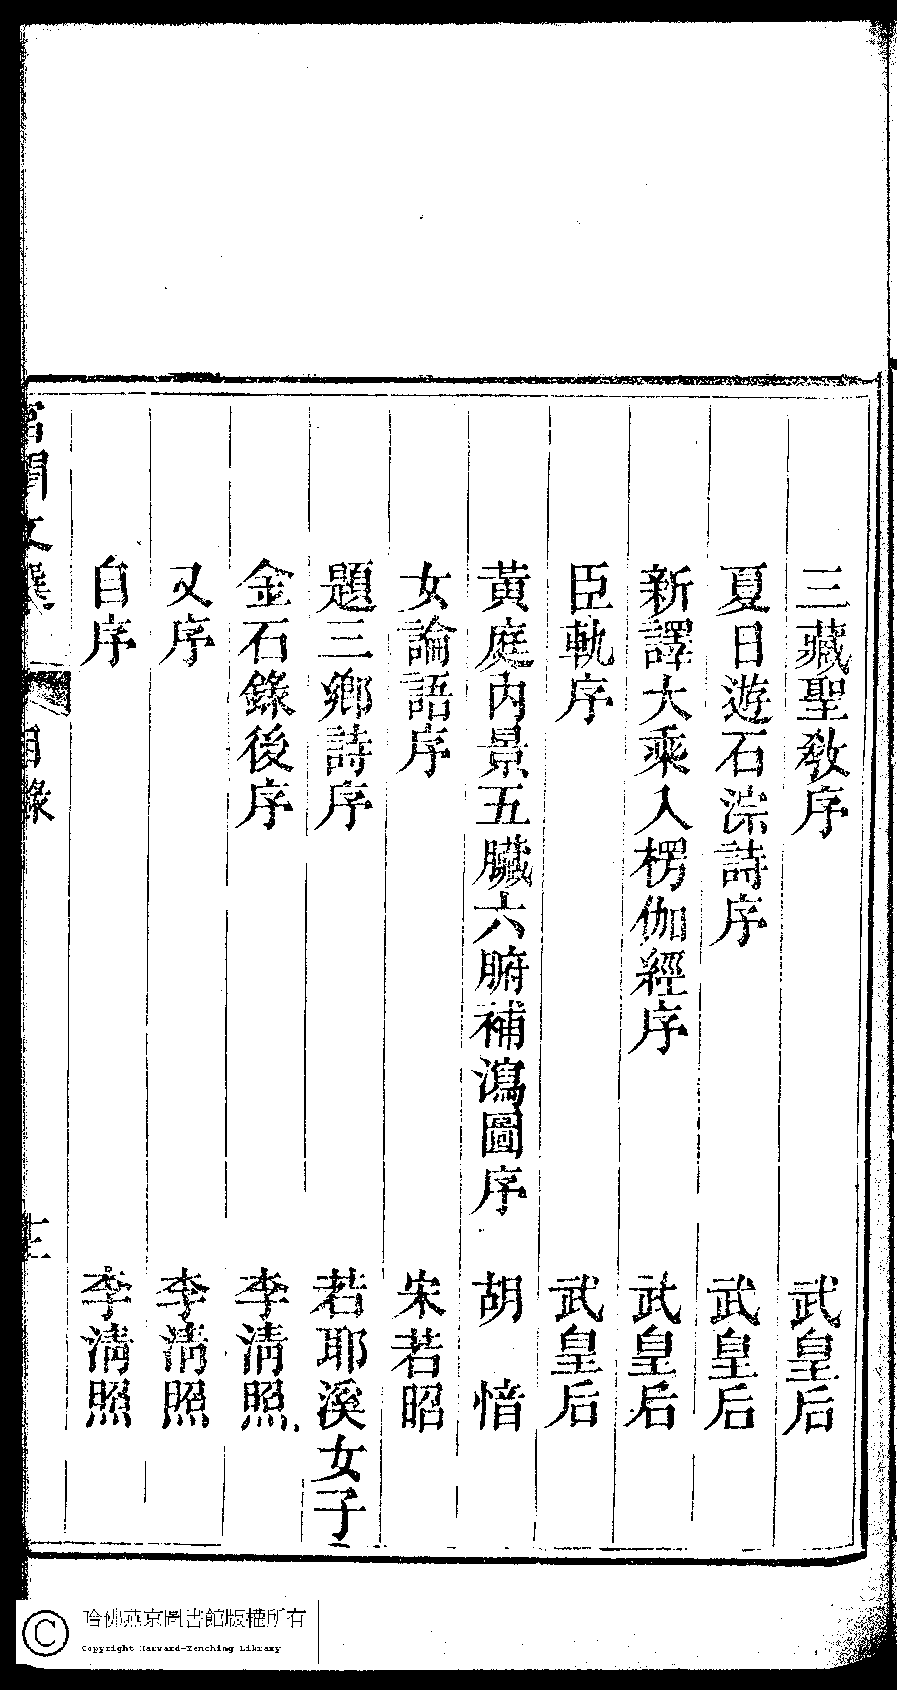 三藏聖教序 武皇后
夏日遊石淙詩序 武皇后
新譯大乘入楞伽經序 武皇后
臣軌序 武皇后
黃庭內景五臟六腑補瀉圖序 胡愔
女論語序 宋若昭
題三鄉詩序 若耶溪女子
金石錄後序 李淸照
又序 李淸照
自序 李淸照
宮閨文選 目錄
哈佛燕京圖書館版權所有
Copyright Harvard-Yenching Library